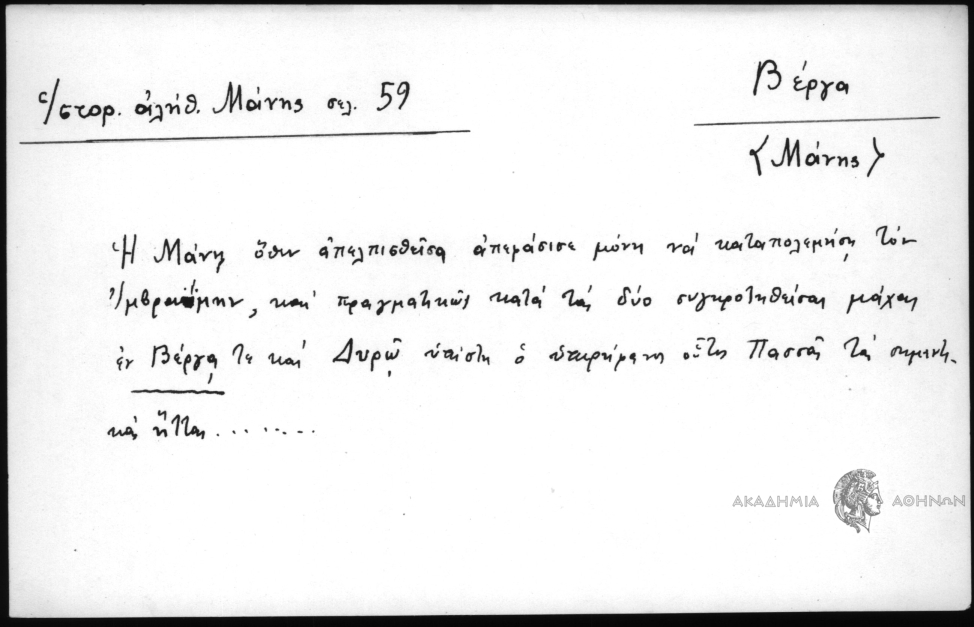 Ἱστορ. ἀλήθ. Μάνης σελ. 59
Βέργα
(Μάνης)
Ἡ Μάνη ὅθεν ἀπελπισθεῖσα ἀπεφάσισε μόνη νά καταπολεμήσῃ τόν
Ἰμβραΐμην, καί πραγματικῶς κατά τάς δύο συγκροτηθείσας μάχας
ἐν Βέργᾳ τε καί Δυρῷ ὑπέστη ὁ οὗτος Πασσᾶς τάς σημαντι-
κάς ἥττας........
ΑΚΑΔΗΜΙΑ ΑΘΗΝΩΝ